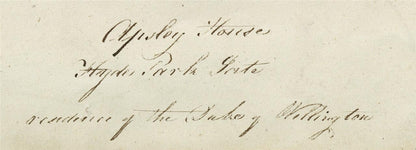 Apsley House
Hyde Park Gate
residence of the Duke of Wellington